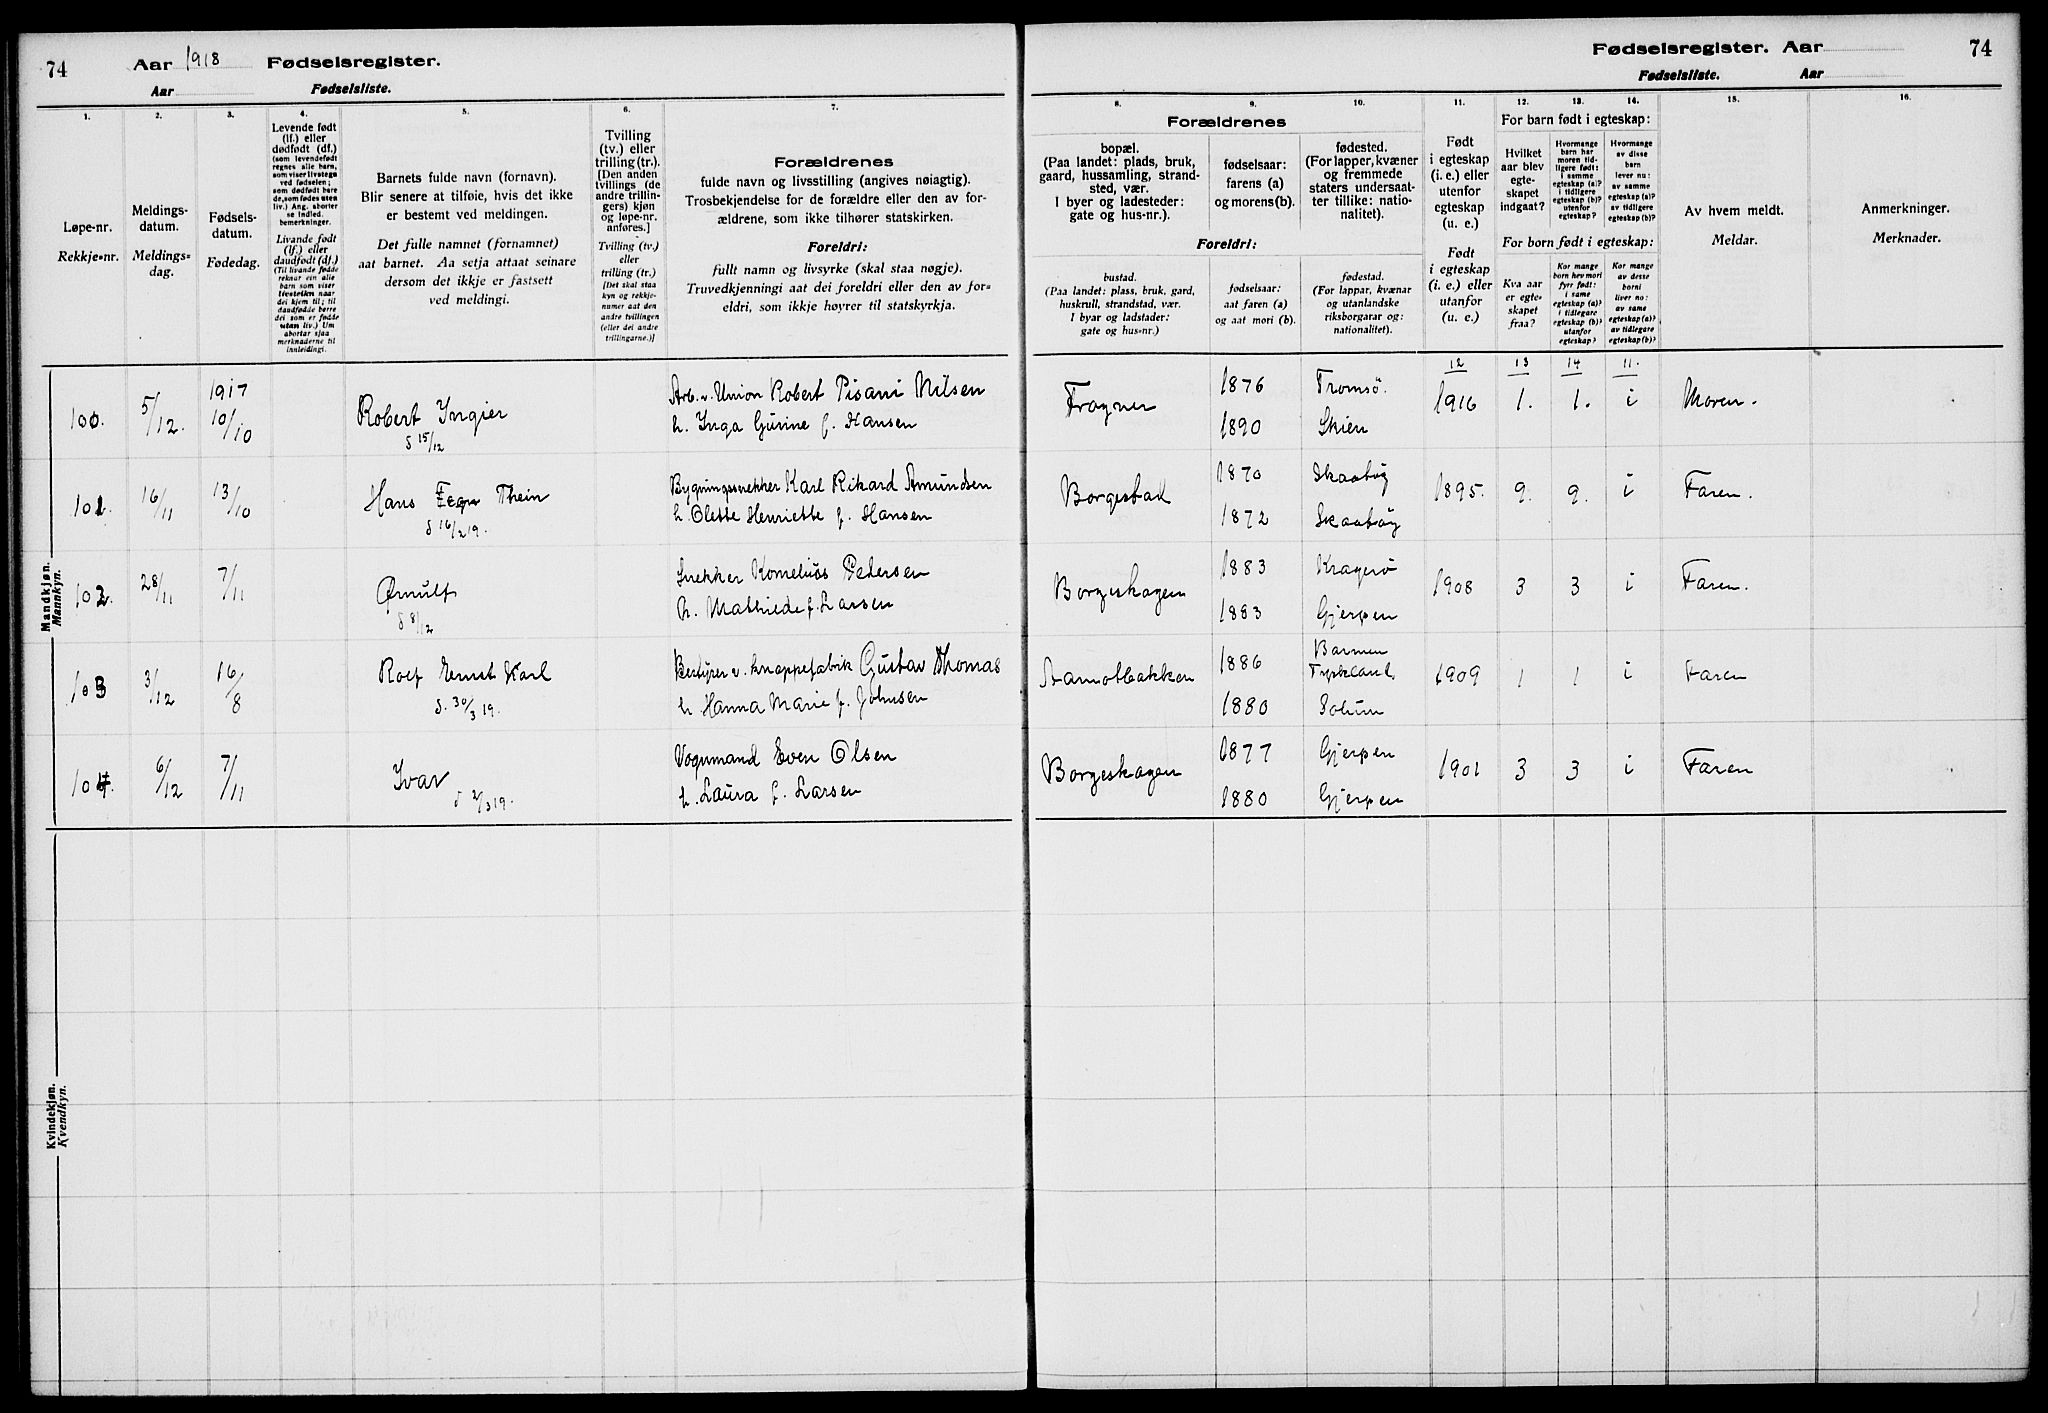 74 Aar 1918 Fødselsregister.
Aar Fødselsliste.
1. 2. 3. 4. 5. 6. 7.
Løpe-nr.
Rekkje-nr.
Meldings-
datum.
Meldings-
dag.
Fødsels-
datum.
Fødedag.
Levende født
(lf.) eller
dødfødt (df.)
(som levendefødt
regnes alle barn,
som viser livstegn
ved fødselen;
som dødfødt bare
de, som fødes uten
liv.) Ang. aborter
se indled.
bemerkninger.
Livande født
(lf.) eller
daudfødt (df.)
(Til livande fødde
reknar ein alle
barn som viser
livsteikn naar
dei kjem til; til
daudfødde berre
dei som er fødde
utan liv.) Um
abortar sjaa
merknaderne til
innleidingi.
Barnets fulde navn (fornavn).
Blir senere at tilføie, hvis det ikke
er bestemt ved meldingen.
Det fulle namnet (fornamnet)
aat barnet. Aa setja attaat seinare
dersom det ikkje er fastsett
ved meldingi.
Tvilling
(tv.) eller
trilling (tr.).
[Den anden
tvillings (de
andre trillin-
gers) kjøn
og løpe-nr.
anføres.]
Tvilling (tv.)
eller
trilling (tr.)
[Det skal staa
kyn og rekkje-
numer aat den
andre tvillingen
(eller dei andre
trillingarne.)]
Forældrenes
fulde navn og livsstilling (angives nøiagtig).
Trosbekjendelse for de forældre eller den av for-
ældrene, som ikke tilhører statskirken.
Foreldri:
fullt namn og livsyrke (skal staa nøgje).
Truvedkjenningi aat dei foreldri eller den av for-
eldri, som ikkje høyrer til statskyrkja.
Mandkjøn.
Mannkyn.
100. 5/12. 1917 10/10 Robert Yngier
δ 15/12
Arb. v. Union Robert Pisani Nilsen
h. Inga Gurine f. Hansen
101. 16/11 13/10 Hans Thein
δ 16/2 19.
Bygningssnekker Karl Rikard Amundsen
h. Olette Henriette f. Hansen
102. 28/11 7/11 Ørnulf
δ 8/12
Snekker Kornelius Pedersen
h. Mathilde f. Larsen
103 3/12 16/8 Rolf Ernst Karl
δ. 30/3 19.
Bestyrer v. knappefabrik Gustav Thomas
h. Hanna Marie f. Johnsen
104. 6/12 7/11 Ivar
δ 2/3 19.
Vognmand Even Olsen
h. Laura f. Larsen
Kvindekjøn.
Kvendkyn.
Fødselsregister. Aar 74
Fødselsliste. Aar
8. 9. 10. 11. 12. 13. 14. 15. 16.
Forældrenes
bopæl.
(Paa landet: plads, bruk,
gaard, hussamling, strand-
sted, vær.
I byer og ladesteder:
gate og hus-nr.).
fødselsaar:
farens (a)
og morens (b).
fødested.
(For lapper, kvæner
og fremmede
staters undersaat-
ter tillike: natio-
nalitet).
Foreldri:
bustad.
(Paa landet: plass, bruk, gard,
huskrull, strandstad, vær.
I byar og ladstader:
gate og hus-nr.)
fødselsaar:
aat faren (a)
og aat mori (b).
fødestad.
(For lappar, kvænar
og utanlandske
riksborgarar og:
nationalitet).
Født
i egteskap
(i. e.) eller
utenfor
egteskap
(u. e.)
Født
i egteskap
(i. e.) eller
utanfor
egteskap
(u. e.)
For barn født i egteskap:
Hvilket
aar blev
egte-
skapet
indgaat?
Hvormange
barn har
moren tid-
ligere født:
i samme
egteskap (a)?
i tidligere
egteskap (b)?
utenfor
egteskap?
Hvormange
av disse
barn
lever nu:
av samme
egteskap (a)?
av tidligere
egteskap (b)?
For born født i egteskap:
Kva aar
er egte-
skapet
fraa?
Kor mange
born hev mori
fyrr født:
i same
egteskap (a)?
i tidlegare
egteskap (b)?
utanfor
egteskap?
Kor mange
av desse
borni
liver no:
av same
egteskap (a)?
av tidlegare
egteskap (b)?
Av hvem meldt.
Meldar.
Anmerkninger.
Merknader.
12 13 14 11.
Frogner 1876 Tromsø. 1916 1. 1. i Moren.
1890 Skien
Borgestad 1870 Skaatøy 1895. 9. 9. i Faren.
1872 Skaatøy
Borgeskogen 1883 Kragerø 1908 3 3 i Faren.
1883 Gjerpen
1886 Barmen Tyskland, 1909 1 1 i Faren
1880 Solum
Borgeskogen 1877 Gjerpen 1901 3 3 i Faren
1880 Gjerpen